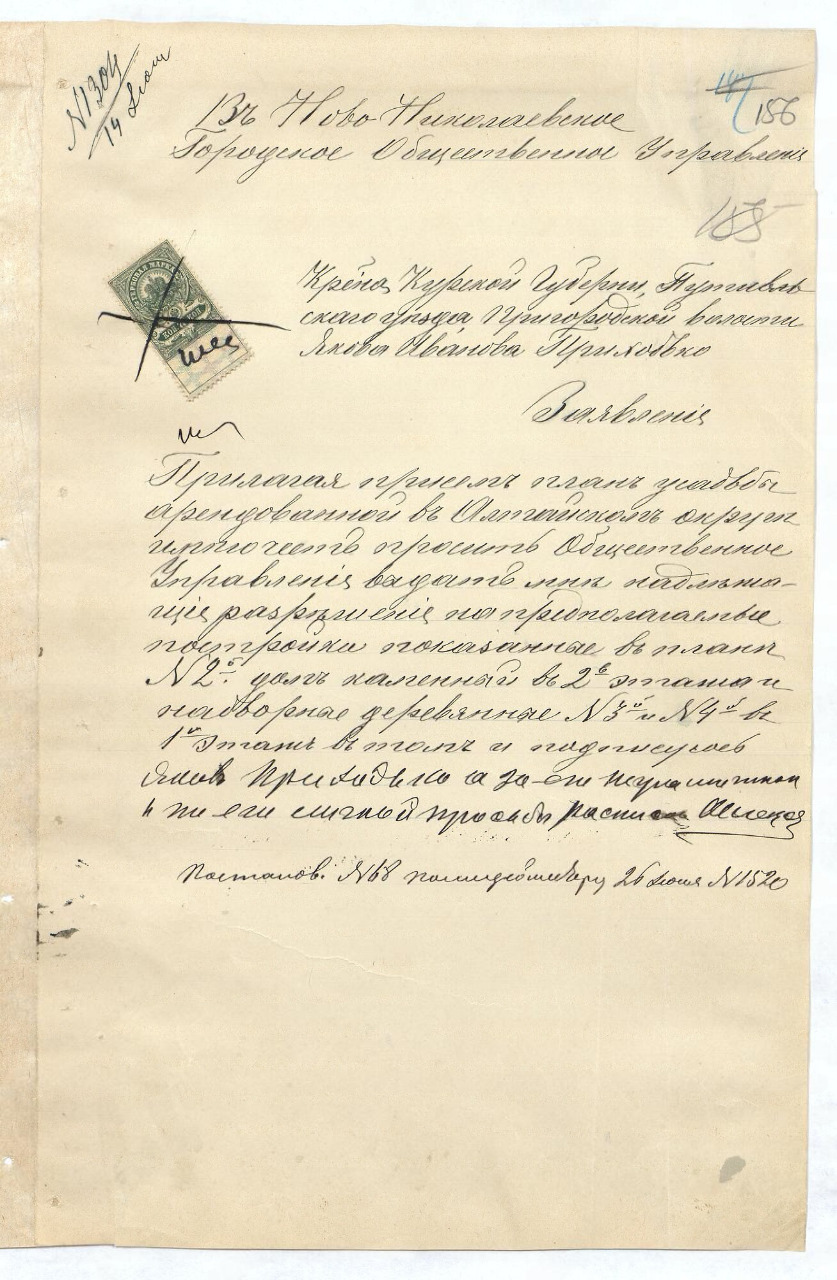 N1304
14 Июн
187
156
155
Въ Ново-Николаевское
Городское Общественное Управленія
Крѣна Курской Губерніи, Путивль
скаго уѣзда Пригородской волости
Якова Иванова Приходько
Заявленія
ГЕРБОВАЯ МАРКА
Прилагая присемъ планъ усадьбы
арендованной въ Алтайскомъ округи
имѣю честь просить Общественное
Управленія выдать мнѣ надлѣжа-
щія разрѣшенія на предполагаемые
постройки показанные въ планѣ
N 2й. домъ каменный въ 2е этажа и
надворные деревянные N 3й и N 4й въ
1й этажъ въ томъ и подписуюсь
Яковъ Приходько а за его неграмотный
и по его личной прозьбы роспис
Постанов. N 68 полицеймейстеру 26 Июня N 1520